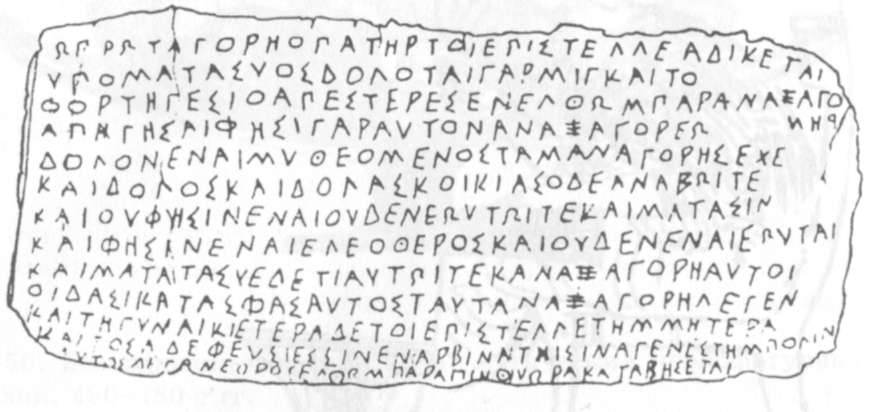 ΩΓΡΩΤΑΓΟΡΗΟΓΑΤΗΡΤΟΙΕΓΙΣΤΕΛΛΕΑΔΙΚΕΤΑΙ
ΥΓΟΜΑΤΑΣΥΟΣΔΟΛΟΤΑΙΓΑΡΜΙΓΚΑΙΤΟ
ΦΟΡΤΗΓΕΣΙΟΑΓΕΣΤΕΡΕΣΕΝΕΛΘΩΜΠΑΡΑΝΑΞΑΓΟ
ΡΗΝ
ΑΠΗΓΗΣΑΙΦΗΣΙΓΑΡΑΥΤΟΝΑΝΑΞΑΓΟΡΕΩ
ΔΟΛΟΝΕΝΑΙΜΥΘΕΟΜΕΝΟΣΤΑΜΑΝΑΓΟΡΗΣΕΧΕ
ΚΑΙΔΟΛΟΣΚΑΙΔΟΛΑΣΚΟΙΚΙΑΣΟΔΕΑΝΑΒΩΙΤΕ
ΚΑΙΟΥΦΗΣΙΝΕΝΑΙΟΥΔΕΝΕΩΥΤΩΙΤΕΚΑΙΜΑΤΑΣΙΝ
ΚΑΙΦΗΣΙΝΕΝΑΙΕΛΕΟΘΕΡΟΣΚΑΙΟΥΔΕΝΕΝΑΙΕΩΥΤΑΙ
ΚΑΙΜΑΤΑΤΑΣΥΕΔΕΤΙΑΥΤΩΙΤΕΚΑΝΑΞΑΓΟΡΗΑΥΤΟΙ
ΟΙΔΑΣΙΚΑΤΑΣΦΑΣΑΥΤΟΣΤΑΥΤΑΝΑΞΑΓΟΡΗΛΕΓΕΝ
ΚΑΙΤΗΓΥΝΑΙΚΙΕΤΕΡΑΔΕΤΟΙΕΓΙΣΤΕΛΛΕΤΗΜΜΗΤΕΡΑ
ΚΑΙΤΟΣΑΔΕΦΕΥΣΙΕΣΣΙΝΕΝΑΡΒΙΝΑΤΗΙΣΙΝΑΓΕΝΕΣΤΗΜΠΟΛΙΝ
ΕΛΘΩΜΠΑΡΑΜΙΝΘΥΩΡΑΚΑΤΑΒΗΣΕΤΑΙ